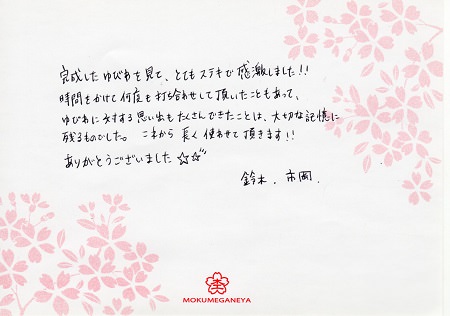 完成したゆびわを見て、とてもステキで感激しました!!
時間をかけて何度も打ち合わせして頂いたこともあって、
ゆびわに対する思い出もたくさんできたことは、大切な記憶に
残るものでした。これから長く使わせて頂きます!!
ありがとうございました☆☆
鈴木. 市岡.
MOKUMEGANEYA